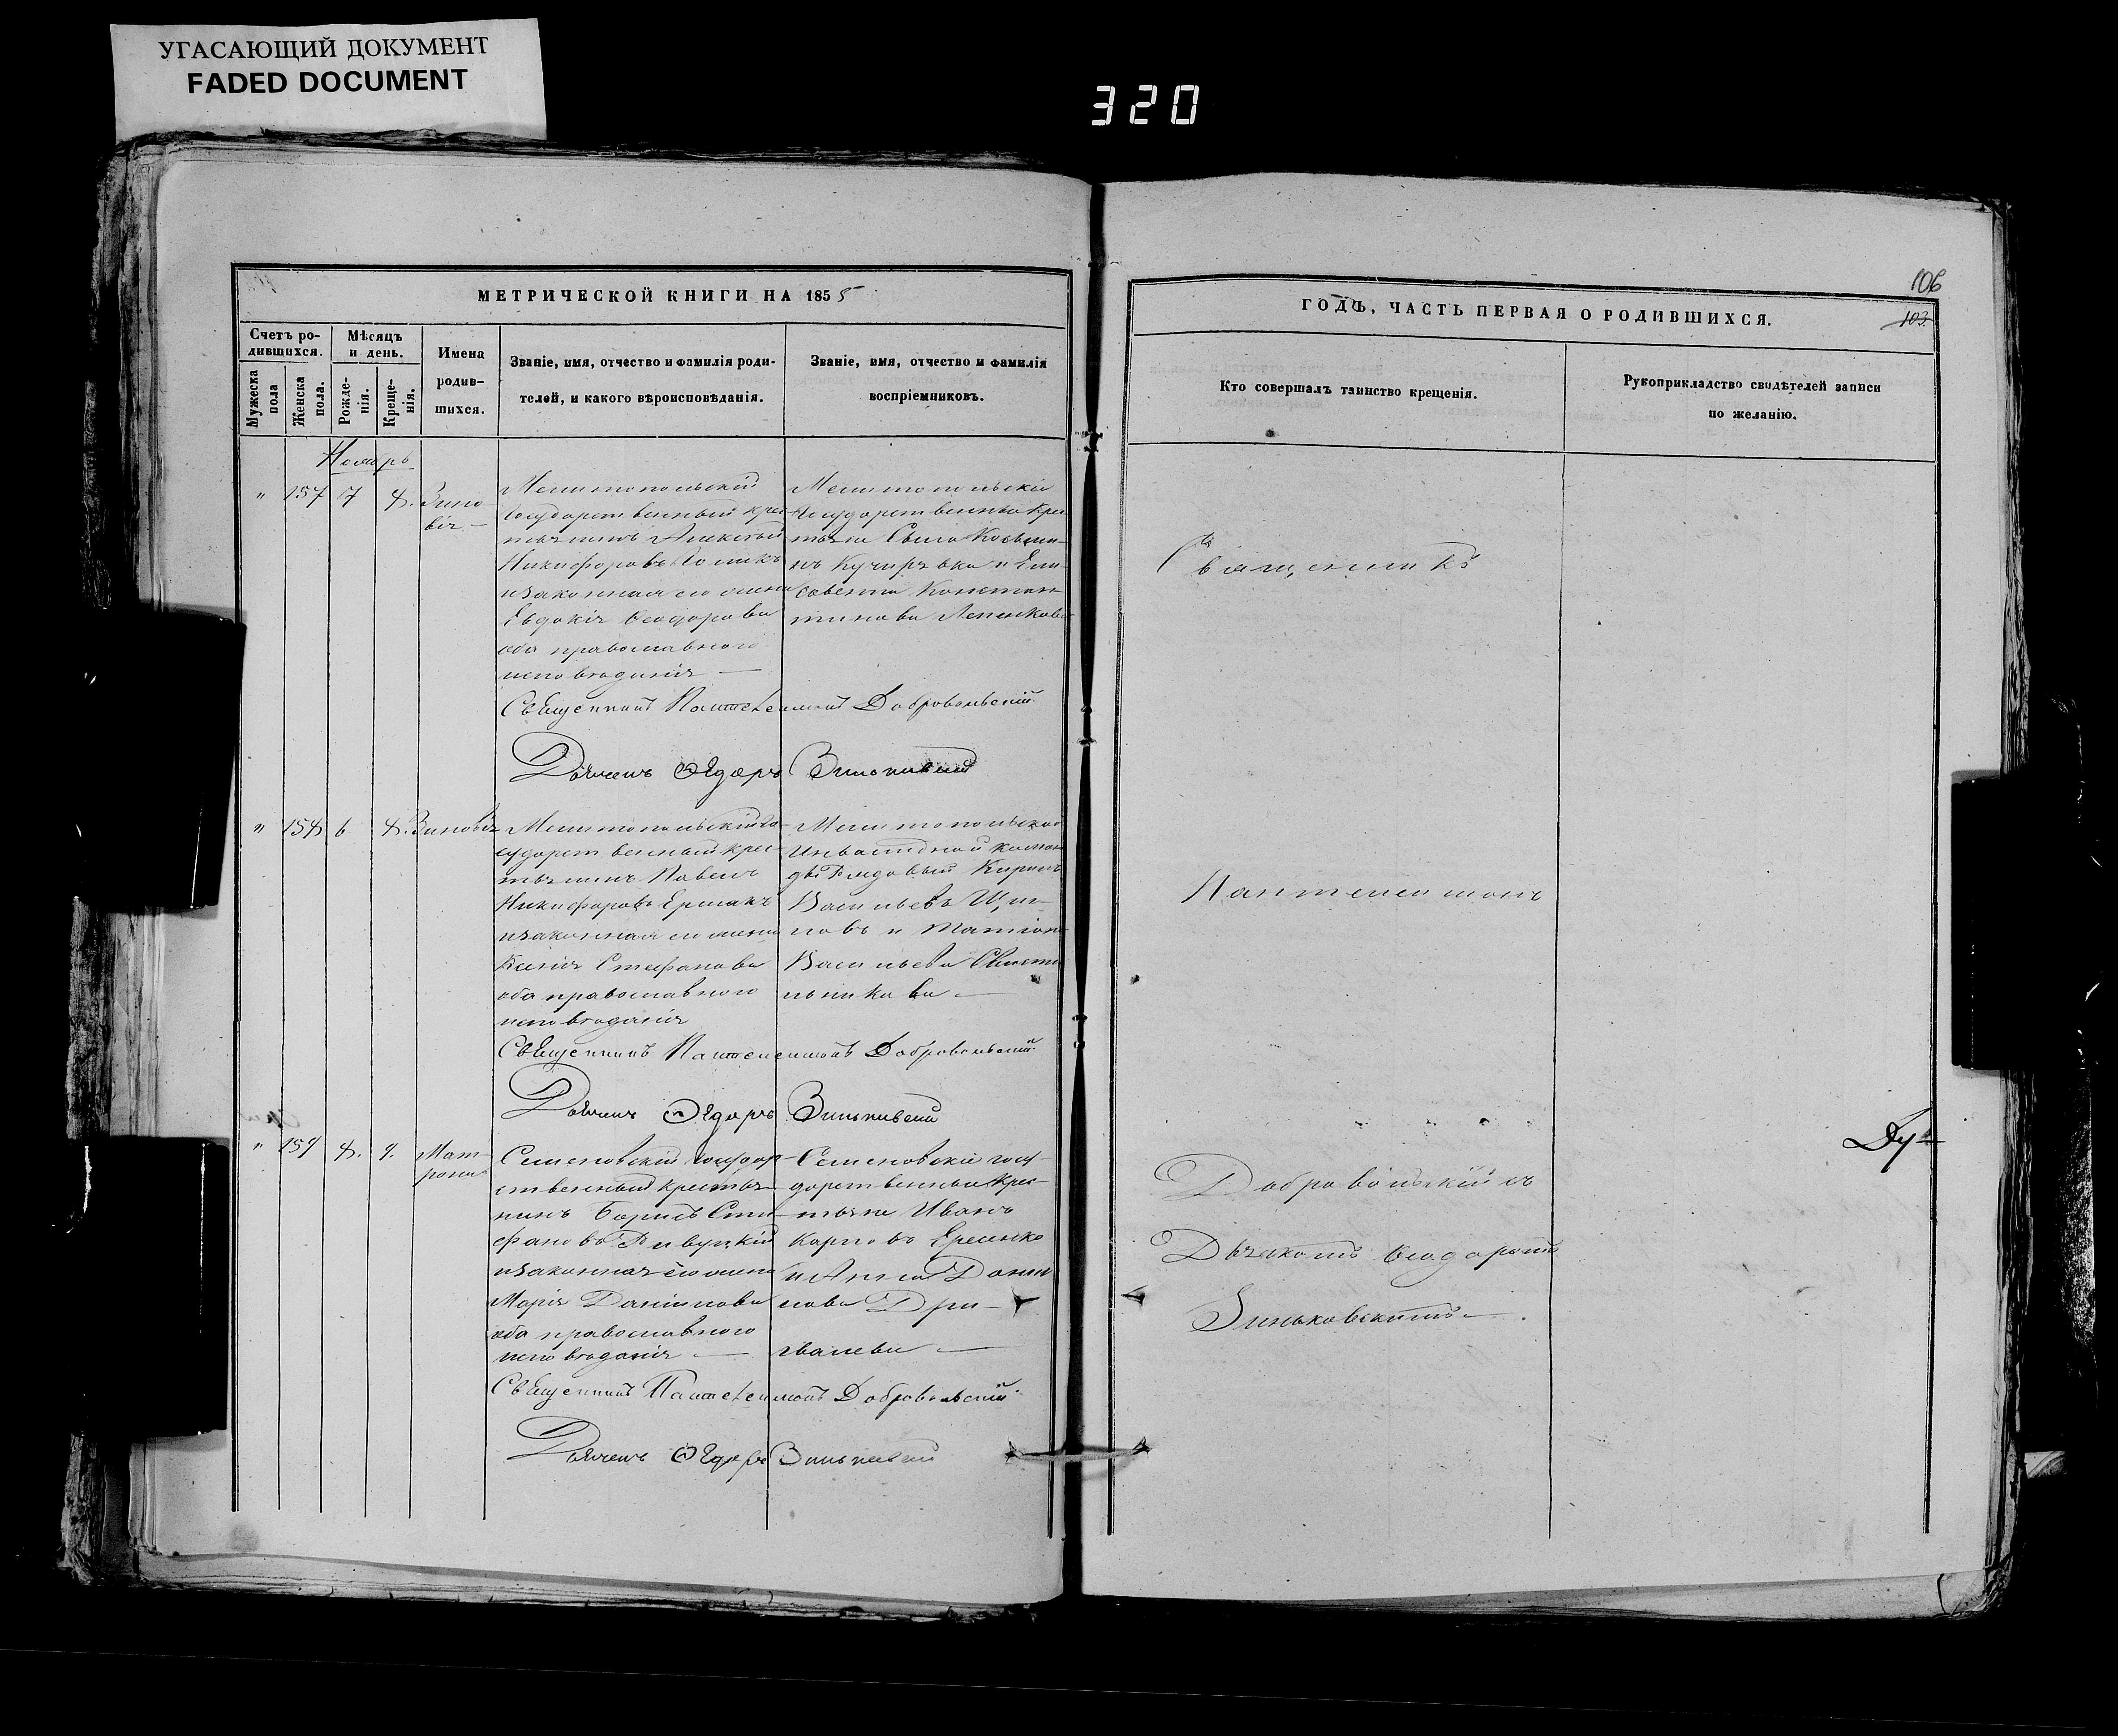 УГАСАЮЩИЙ ДОКУМЕНТ
FADED DOCUMENT
320
МЕТРИЧЕСКОЙ КНИГИ НА 1855
Счетъ ро-
дившихся.
Мужеска
пола
Женска
пола.
Мѣсяцъ
и день.
Рожде-
нія.
Креще-
нія.
Имена
родив-
шихся.
Званіе, имя, отчество и фамилія роди-
телей, и какого вѣроисповѣданія.
Званіе, имя, отчество и фамилія
воспріемниковъ.
Ноябрь
" 157 7 8. Зино
вія
Мелитопольскій
государственный крес-
тьянинъ Алексѣй
Никифоровъ
и законная его жена
Евдокія Ѳеодорова
оба православного
исповѣданія
Мелитопольскіе
государственные крес
тьяне Савва Космин-
и Ели-
совета Констан-
тинова
Священникъ Пантелеимонъ Добровольскій
Дьячекъ Ѳедоръ Зиньковский
" 158 6 8. Зиновія
Мелитопольскій го-
сударственный крес-
тьянинъ Павелъ
Никифоровъ Ермакъ
и законная его жена
Ксенія Стефанова
оба православного
исповѣданія
Мелитопольской
Инвалидной коман
ды Рядовый Кирилъ
Васильевъ
и
Васильева
Священникъ Пантелеимонъ Добровольскій
Дьячекъ Ѳедоръ Зиньковский
" 159 8. 9. Мат
рона
Семеновскій государ-
ственный крестья-
нинъ Борисъ Сте-
фановъ
и законная его жена
Марія Даніилова
оба православного
исповѣданія
Семеновскіе госу-
дарственные крес-
тьяне Иванъ
Карповъ
и Анна Дани
лова
Священникъ Пантелеимонъ Добровольскій
Дьячекъ Ѳедоръ Зиньковский
106
103
ГОДЪ, ЧАСТЬ ПЕРВАЯ О РОДИВШИХСЯ.
Кто совершалъ таинство крещенія.
Рукоприкладство свидѣтелей записи
по желанію.
Священникъ
Пантелеимонъ
Добровольскій съ
Дьячкомъ Ѳеодоромъ
Зиньковскимъ
Ду-